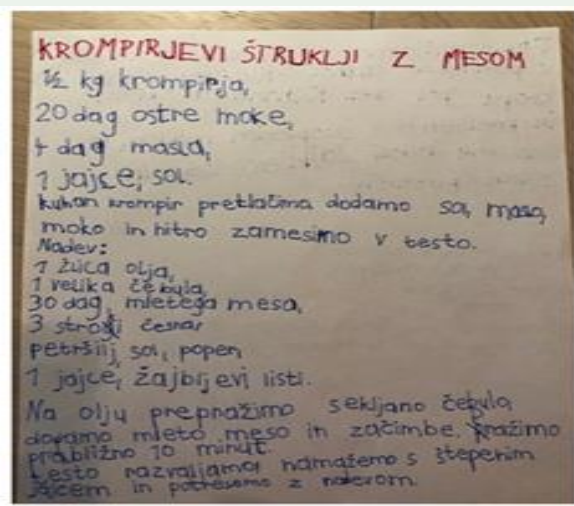 KROMPIRJEVI ŠTRUKLJI Z MESOM
½ kg krompirja,
20 dag ostre moke,
4 dag masla,
1 jajce, sol.
Kuhan krompir pretlačimo dodamo sol, maso,
moko in hitro zamesimo v testo.
Nadev:
1 žlica olja,
1 velika čebula,
30 dag mletega mesa,
3 stroki česna
petršilj, sol, popen
1 jajce, žajbljevi listi.
Na olju prepražimo sekljano čebulo,
dodamo mleto meso in začimbe. Pražimo
približno 10 minut.
Testo razvaljamo, namažemo s stepenim
jajcem in potresemo z nadevom.